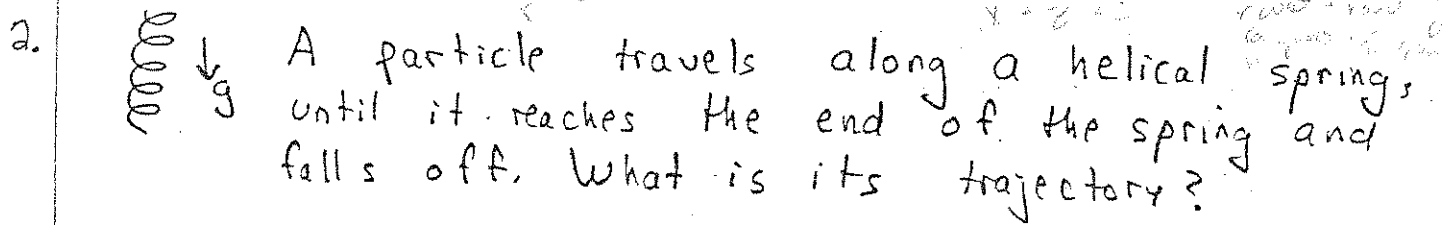 2.
g
A particle travels along a helical spring,
until it reaches the end of the spring and
falls off. What is its trajectory?